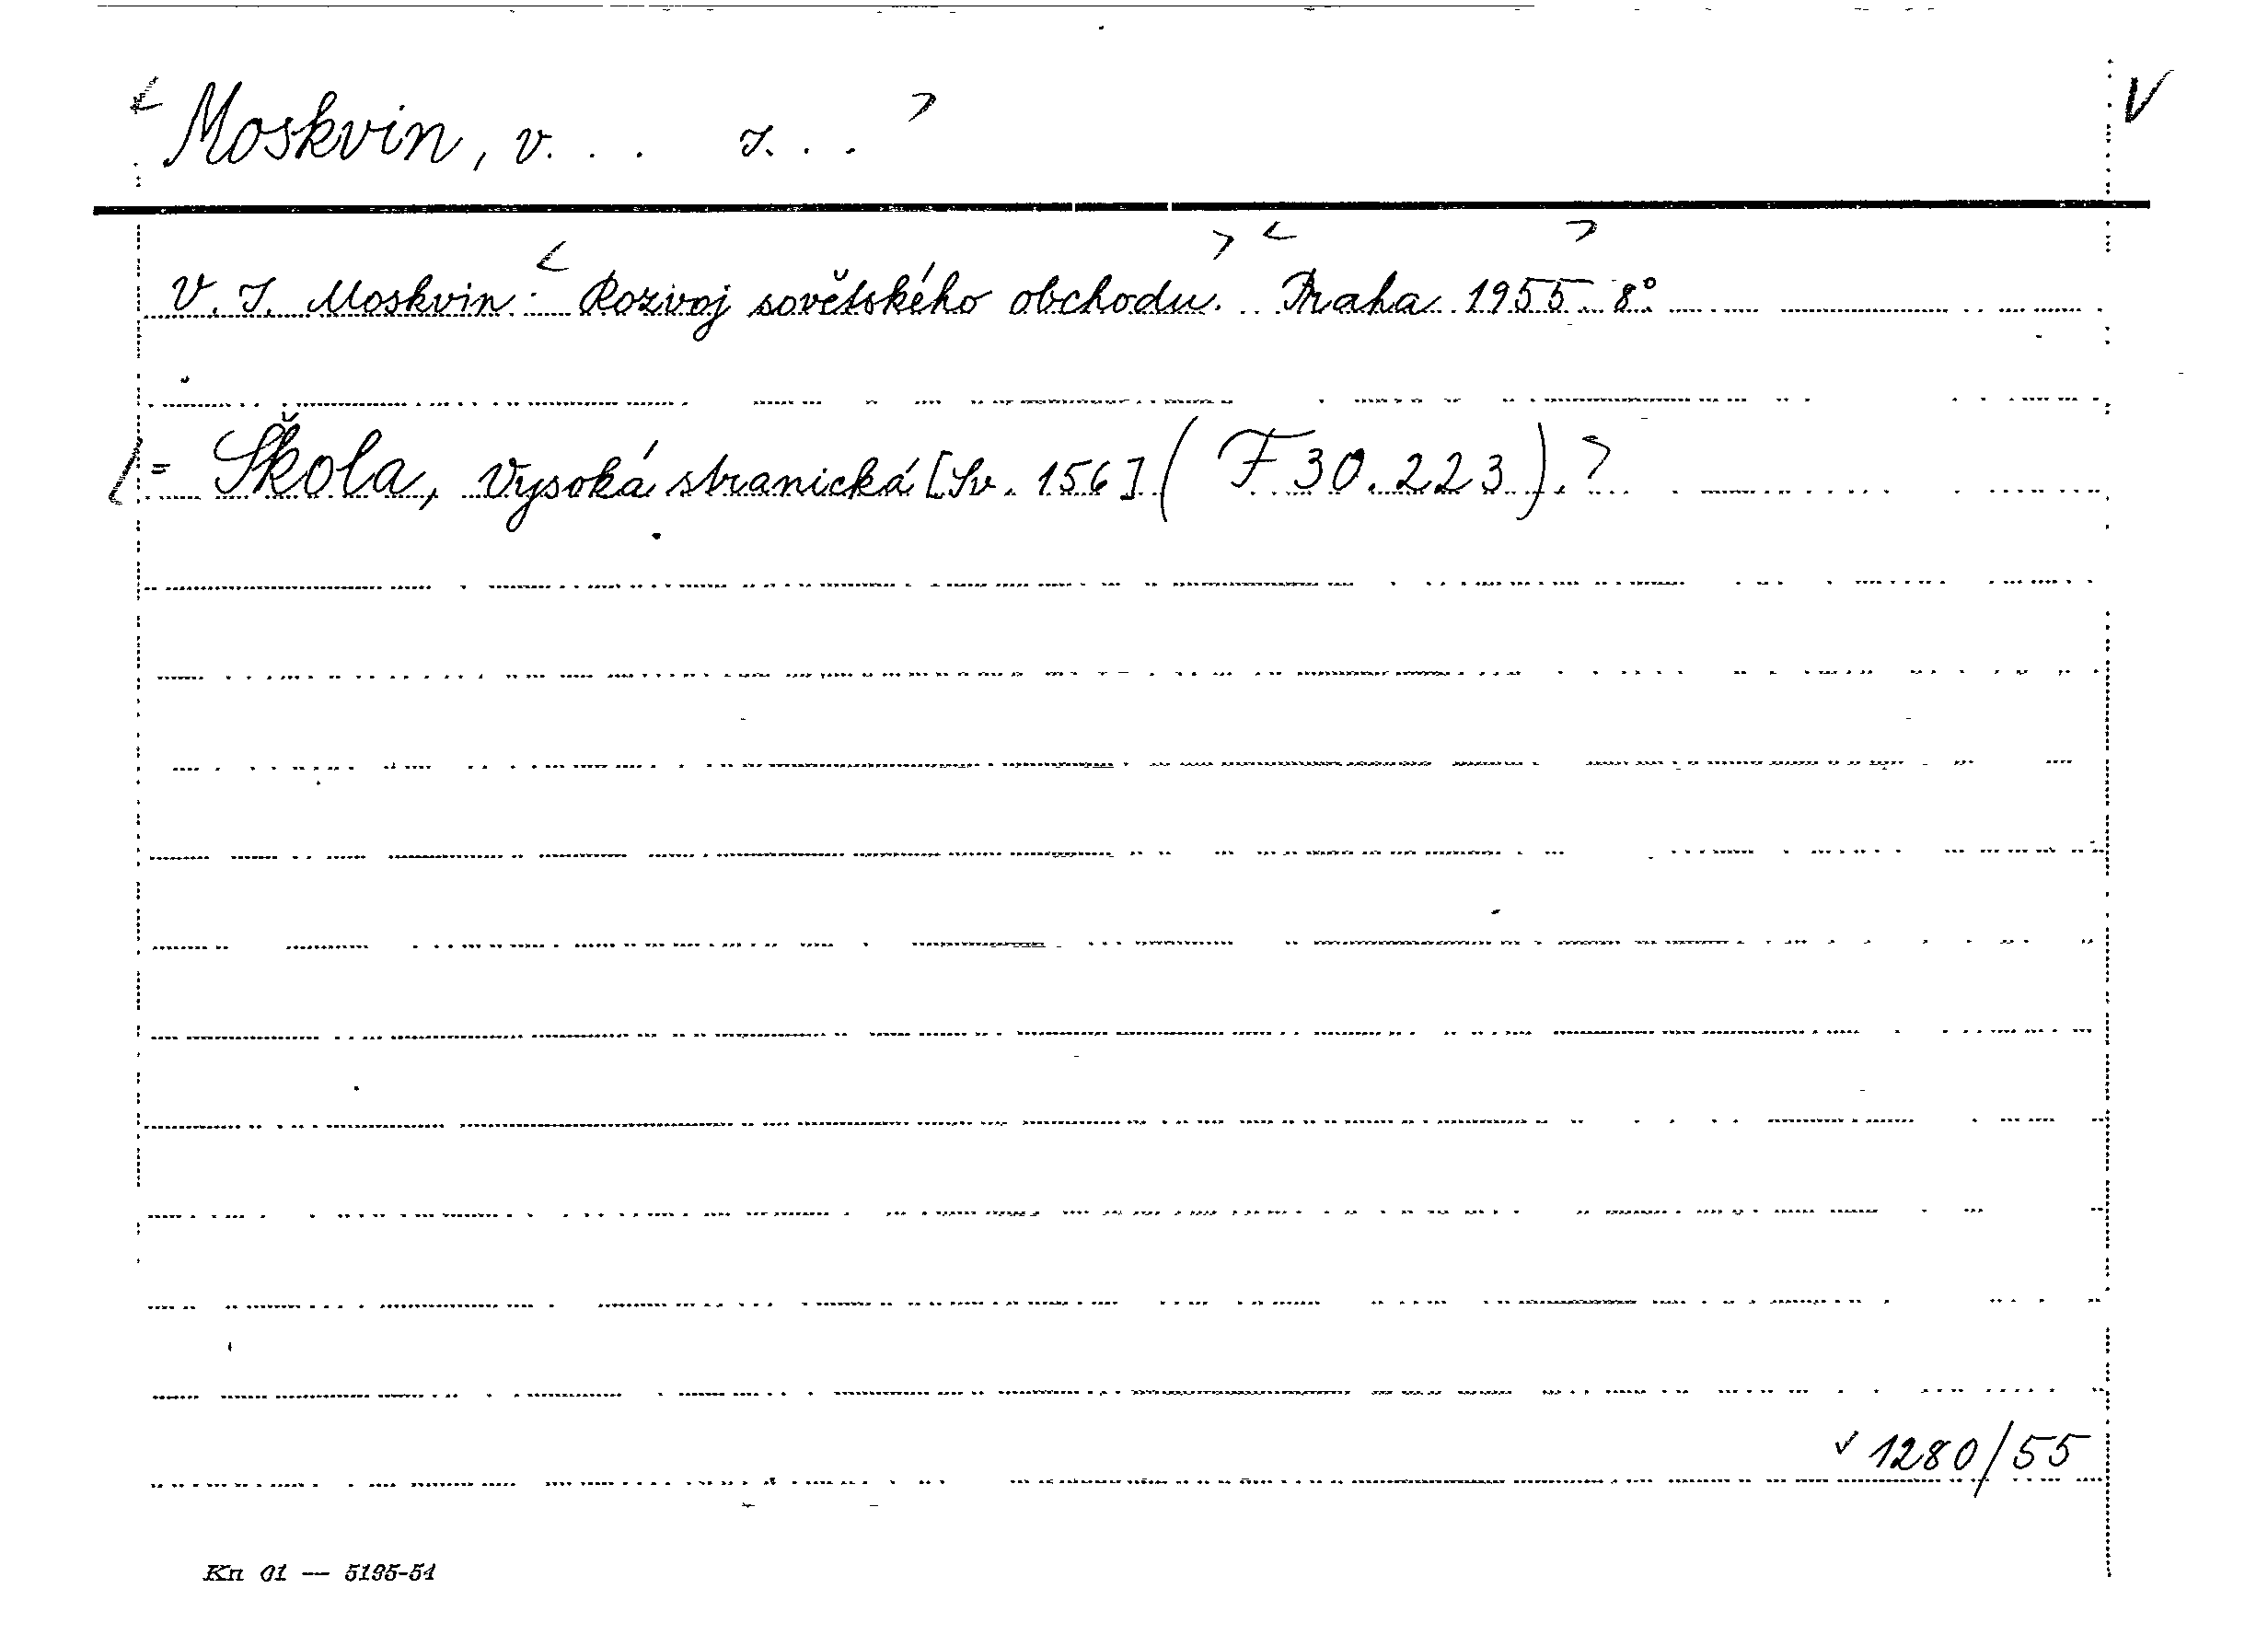 < Moskvin, V. . . J. . . > V
V. J. Moskvin: < Rozvoj sovětského obchodu. > < Praha 1955. > 8°
= Škola, Vysoká stranická [Sv. 156] ( F 30.223 ). >
✓ 1280/55
Kn 01 — 5195-54